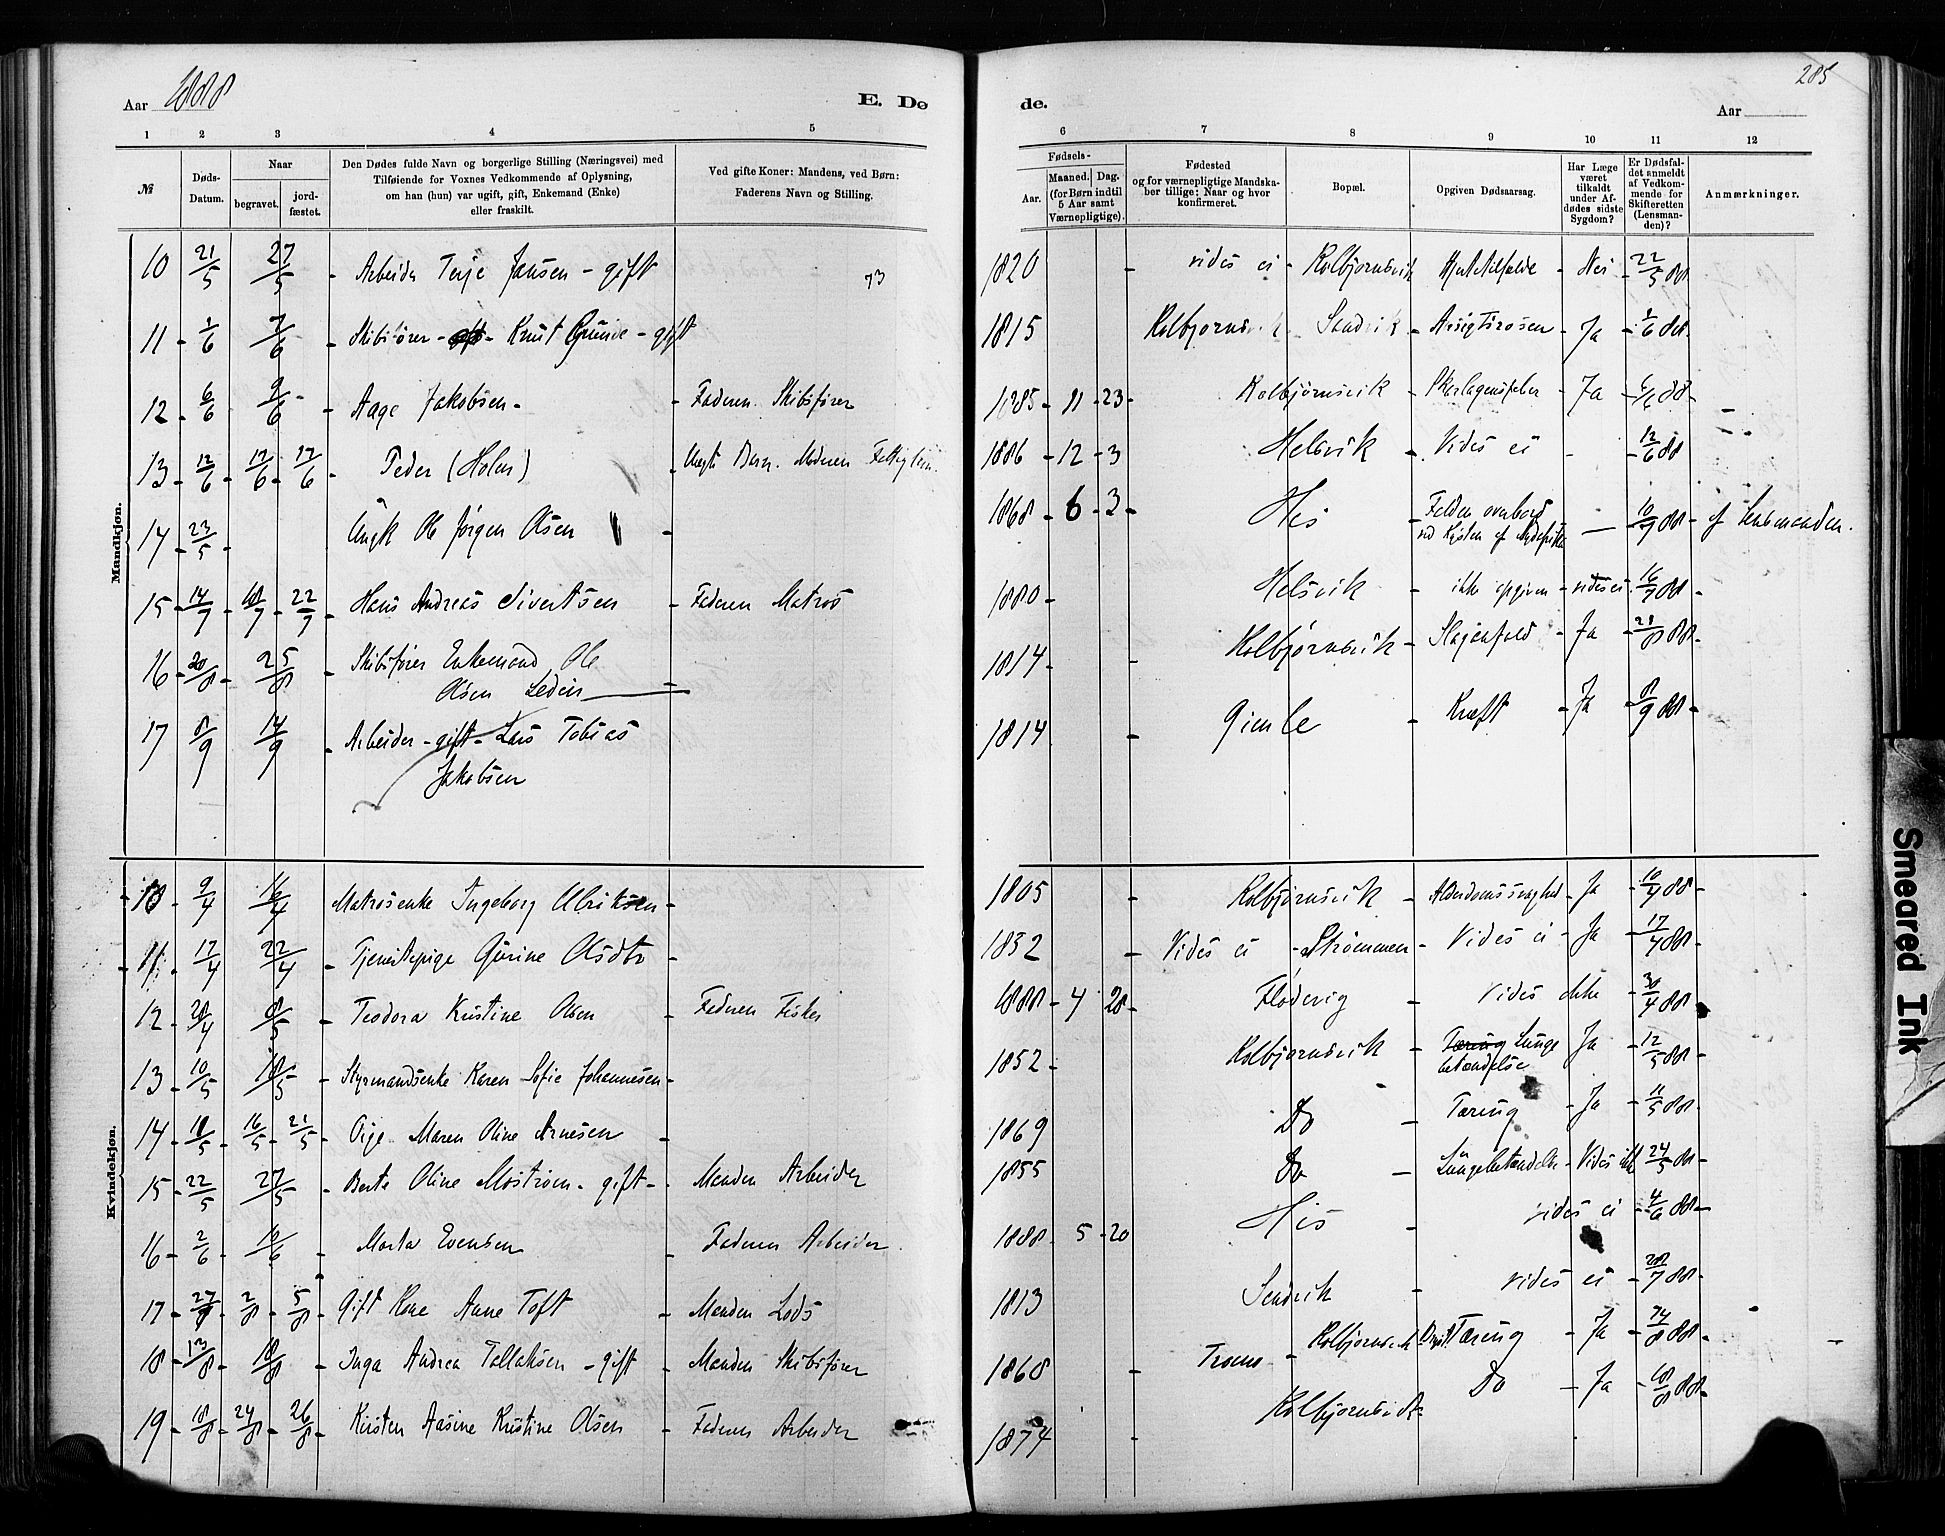 285
Aar 1888 E. Dø
de. Aar
1 2 3 4 5 6 7 8 9 10 11 12
№
Døds-Datum.
Naar
begravet.
jord-fæstet.
Den Dødes fulde Navn og borgerlige Stilling (Næringsvei) med
Tilføiende for Voxnes Vedkommende af Oplysning,
om han (hun) var ugift, gift, Enkemand (Enke)
eller fraskilt.
Ved gifte Koner: Mandens, ved Børn:
Faderens Navn og Stilling.
Fødsels-
Aar.
Maaned. Dag.
(for Børn indtil
5 Aar samt
Værnepligtige).
Fødested
og for værnepligtige Mandska-
ber tillige: Naar og hvor
konfirmeret.
Bopæl.
Opgiven Dødsaarsag.
Har Læge
været
tilkaldt
under Af-
dødes sidste
Sygdom?
Er Dødsfal-
det anmeldt
af Vedkom-
mende for
Skifteretten
(Lensman-
den)?
Anmærkninger.
Mandkjøn.
10 21/5 27/5 - Arbeider Terje Jansen - gift 73 1820 - vides ei - Kolbjørnsvik Hjertetilfælde - Nei - 22/5 88
11 - 2/6 7/6 - Skibsfører - Knut - gift 1815 Kolbjørnsvik - Sandvik - - Ja - 6 88.
12 - 6/6 9/6 - Aage Jakobsen - - Faderen Skibsfører 1885 - 11 - 23 - Kolbjørnsvik - Skarlagensfeber - Ja - 6/6 88 -
13 - 12/6 - 17/6 - 17/6 - Peder (Holm) - Uægte Barn. Moderen 1886 - 12 - 3 Helsvik - Vides ei - - 12/6 88
14 - 23/5 - Ungk Ole Jørgen Olsen - 1868 - 6 - 3 - His - Falden overbord
ved Kysten af — - 10/7 88 - af Lensmanden.
15 - 14/7 - 18/7 - 22/7 - Hans Andreas Sivertsen - Faderen Matros 1880 - Helsvik - ikke opgiven - vides ei - 16/7 88 -
16 - 20/8 - 25/8 - Skibsfører Enkemand Ole
Olsen Ledin - 1814 - Kolbjørnsvik - Slaganfald - Ja - 21/8 88 -
17 8/9 14/9 - Arbeider - gift - Lars Tobias
Jakobsen 1814 - Gimle - Kræft - Ja - 8/9 88 -
Kvindekjøn.
10 - 9/4 16/4 Matrosenke Ingeborg Ulriksen - 1805 - Kolbjørnsvik - Alderdomssvaghed - Ja - 10/4 88 -
11 - 17/4 22/4 - Tjenestepige Gurine Olsdtr - 1832 - Vides ei - Strømmen - Vides ei - Ja - 17/4 88 -
12 - 28/4 8/5 - Teodora Kristine Olsen - Faderen Fisker 1888 - 4 20 - Flødevig - Vides ikke - 30/4 88 -
13 - 10/5 - 18/5 - Styrmandsenke Karen Sofie Johannesen - 1852 - Kolbjørnsvik - Tæring Lunge
betændelse Ja - 12/5 88 -
14 - 11/5 - 16/5 - 21/5 - Pige Maren Oline Arnesen - 1869 Do - Tæring - Ja - 11/5 88 -
15 - 22/5 27/5 - Berte Oline Moström - gift - - Manden Arbeider 1855 Do - Lungebetændelse - Vides ikke 24/5 88 -
16 - 2/6 - 10/6 - Marta Evensen - Faderen Arbeider. 1888 - 5 - 20 His - vides ei - 4/6 88 -
17 - 27/7 - 2/8 - 5/8 - Gift Kone Anne Toft - Manden Lods 1813 Sandvik - vides ei - 28/7 88 -
18 - 13/8 - 18/8 - Inga Andrea Tallaksen - gift - Manden Skibsfører 1860 - Tromø - Kolbjørnsvik Tæring - Ja - 14/8 88 -
19 - 18/8 - 24/8 - 26/8 - Kirsten Aasine Kristine Olsen - Faderen Arbeider 1874 Kolbjørnsvik - Do - Ja - 18/8 88 -
Smeared Ink